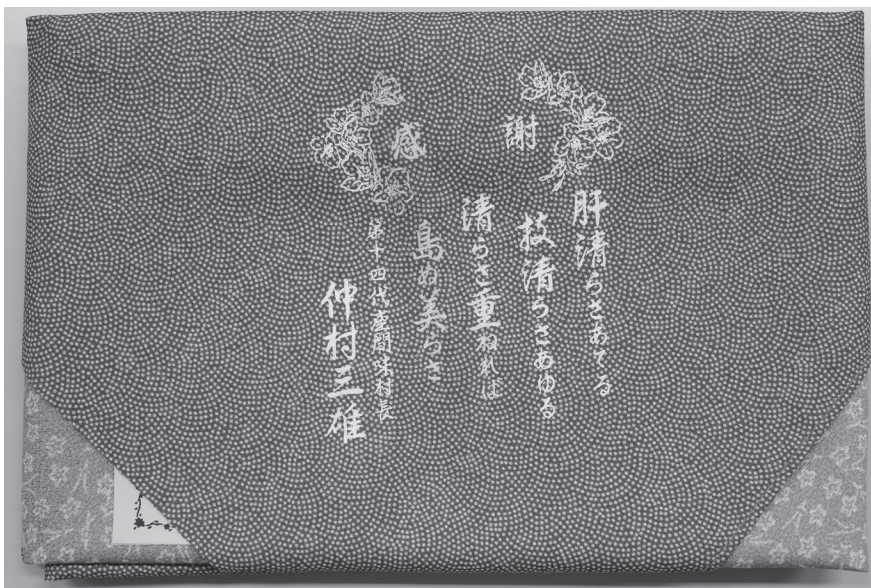 感謝
肝清らさあてる
技清らさあゆる
清らさ重ねれば
島ぬ美らさ
第十四代座間味村長
仲村三雄